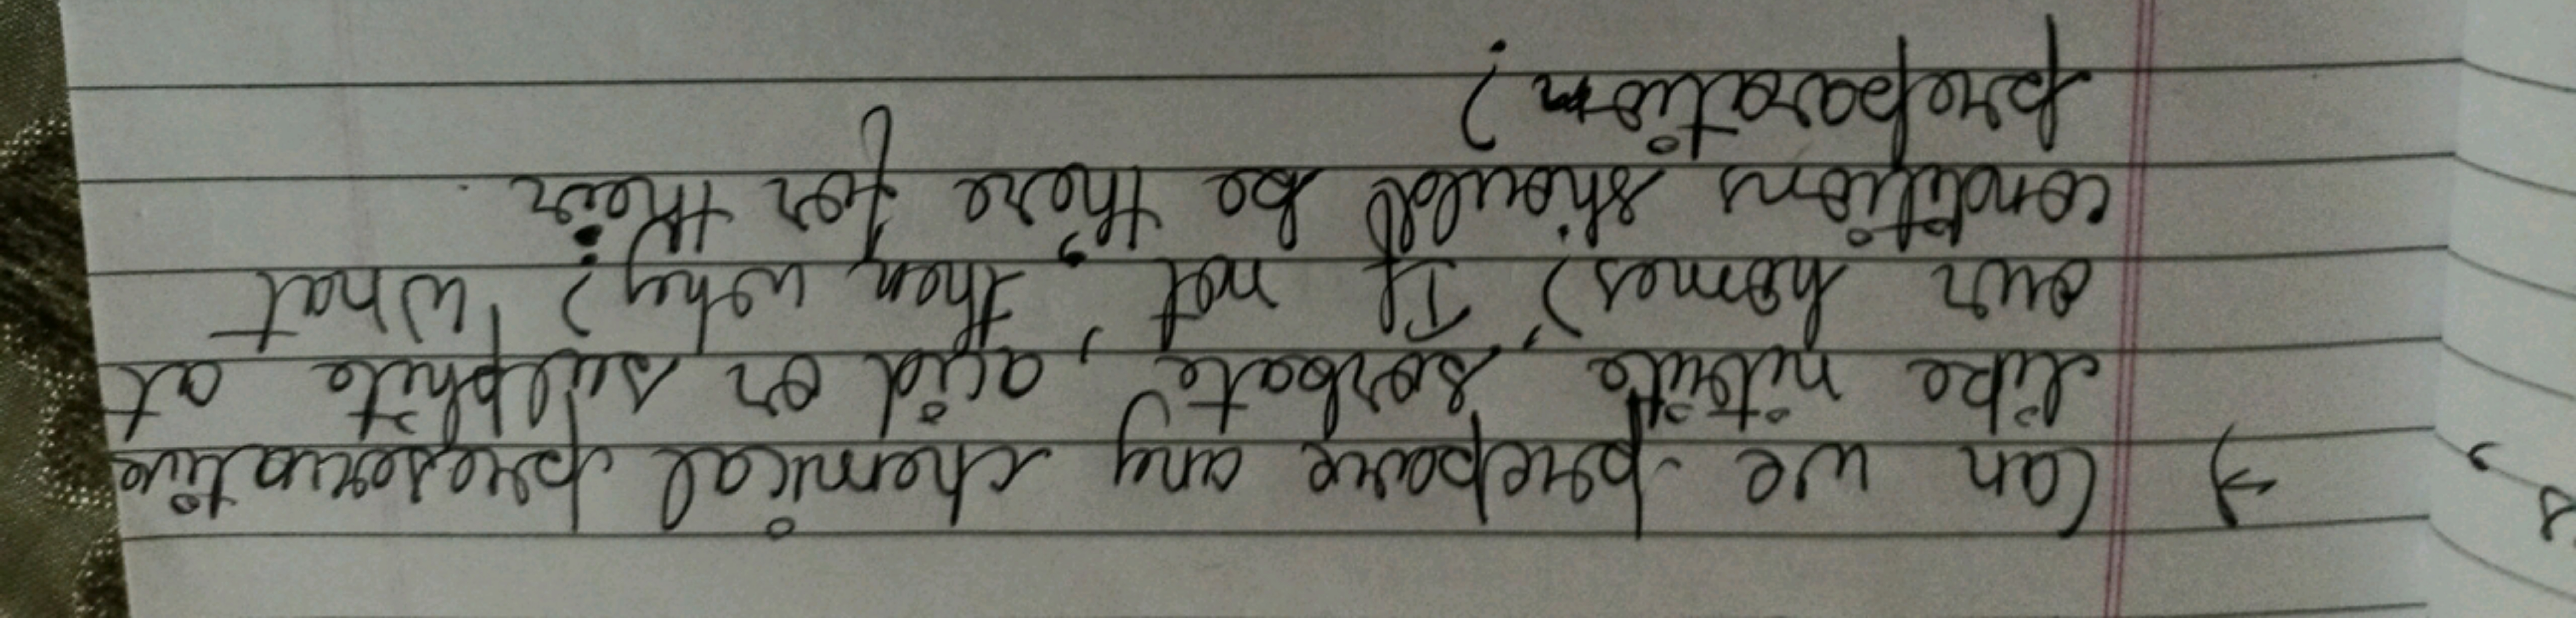 → Can we prepare any chemical preservative
like nitrite, sorbate, acid or sulphite at
our homes? If not, then why? What
conditions should be there for their
preparation?